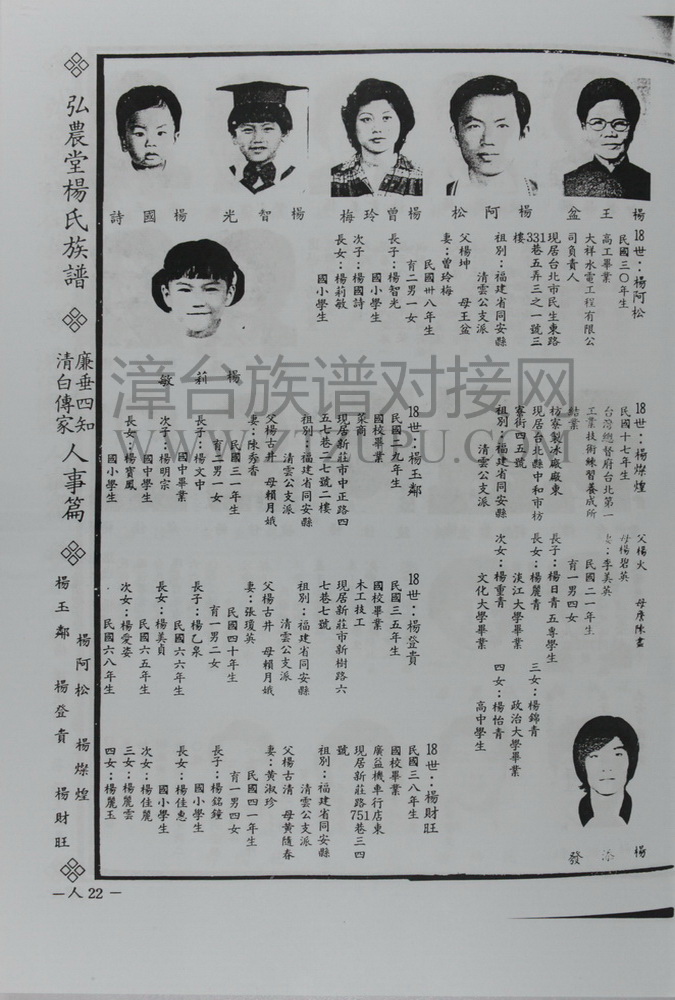 楊王盆
楊阿松
楊曾玲梅
楊智光
楊國詩
18世：楊阿松
民國三〇年生
高工畢業
大祥水電工程有限公
司負責人
現居台北市民生東路
331巷五弄三之一號三
樓
祖別：福建省同安縣
清雲公支派
父楊坤　母王盆
妻：曾玲梅
民國卅八年生
育二男一女
長子：楊智光
國小學生
次子：楊國詩
長女：楊莉敏
國小學生
楊莉敏
18世：楊燦煌
民國十七年生
台灣總督府台北第一
工業技術練習養成所
結業
枋寮製冰廠廠東
現居台北縣中和市枋
寮街四五號
祖別：福建省同安縣
清雲公支派
父楊火
母楊碧英
妻：李美英
民國二一年生
育一男四女
長子：楊日青　五專學生
長女：楊麗青
淡江大學畢業
次女：楊重青
文化大學畢業
三女：楊錦青
政治大學畢業
四女：楊怡青
高中學生
18世：楊玉鄰
民國二九年生
國校畢業
菜商
現居新莊市中正路四
五七巷二七號二樓
祖別：福建省同安縣
清雲公支派
父楊古井　母賴月娥
妻：陳秀香
民國三一年生
育二男一女
長子：楊文中
國中畢業
次子：楊明宗
國中學生
長女：楊寶鳳
國小學生
18世：楊登貴
民國三五年生
國校畢業
木工技工
現居新莊市新樹路六
七巷七號
祖別：福建省同安縣
清雲公支派
父楊古井　母賴月娥
妻：張瓊英
民國四十年生
育一男二女
長子：楊乙泉
民國六六年生
長女：楊美貞
民國六五年生
次女：楊愛姿
民國六八年生
18世：楊財旺
民國三八年生
國校畢業
廣益機車行店東
現居新莊路751巷三四
號
祖別：福建省同安縣
清雲公支派
父楊古清　母黃隨春
妻：黃淑珍
民國四一年生
育一男四女
長子：楊銘鐘
國小學生
長女：楊佳惠
國小學生
次女：楊佳麗
三女：楊麗雲
四女：楊麗玉
楊添發
弘農堂楊氏族譜
廉垂四知
清白傳家
人事篇
楊阿松　楊燦煌
楊玉鄰　楊登貴　楊財旺
—人 22—
漳台族谱对接网